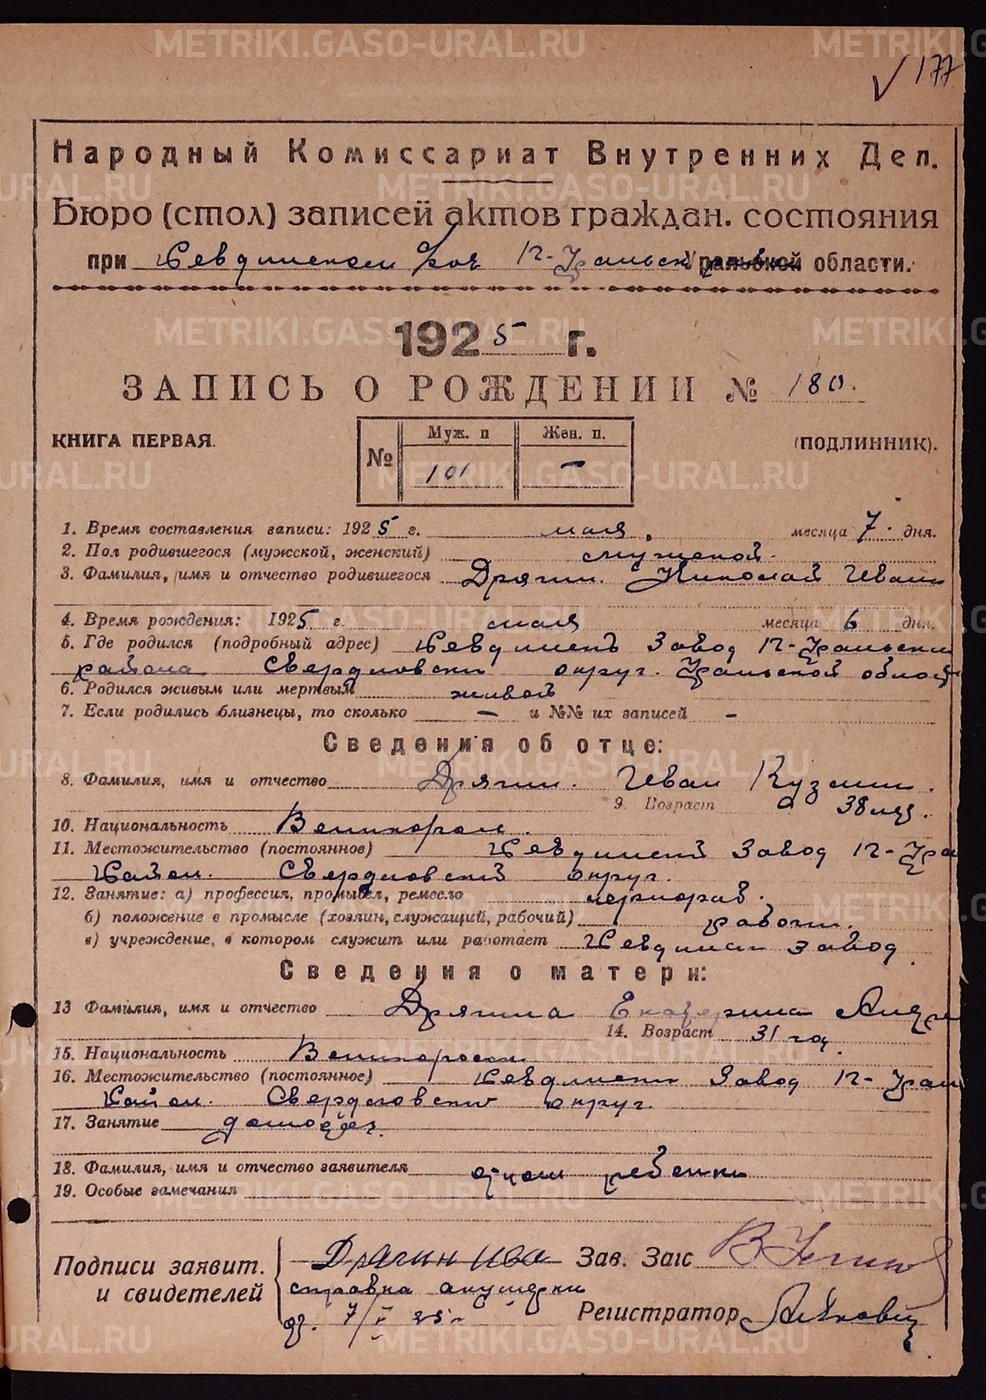 METRIKI.GASO-URAL.RU
177
Народный Комиссариат Внутренних Дел.
Бюро (стол) записей актов граждан. состояния
при Ревдинском П-Уральск Уральской области.
1925 г.
ЗАПИСЬ О РОЖДЕНИИ № 180.
КНИГА ПЕРВАЯ. № Муж. п Жен. п. (ПОДЛИННИК).
101 –
1. Время составления записи: 1925 г. мая месяца 7 дня.
2. Пол родившегося (мужской, женский) мужской.
3. Фамилия, имя и отчество родившегося Дрягин. Николай Иван
4. Время рождения: 1925 г. мая месяца 6 дня.
5. Где родился (подробный адрес) Ревдинск Завод П-Уральск
района Свердловск округ. Уральской област
6. Родился живым или мертвым живой
7. Если родились близнецы, то сколько – и №№ их записей –
Сведения об отце:
8. Фамилия, имя и отчество Дрягин. Иван Кузмич.
9. Возраст 38 лет.
10. Национальность Великорос.
11. Местожительство (постоянное) Ревдинск Завод П-Ура
Район. Свердловский округ.
12. Занятие: а) профессия, промысел, ремесло
б) положение в промысле (хозяин, служащий, рабочий) рабочий.
в) учреждение, в котором служит или работает Ревдинск завод
Сведения о матери:
13 Фамилия, имя и отчество Дрягина Екатерина Андре
14. Возраст 31 год.
15. Национальность Великоросска
16. Местожительство (постоянное) Ревдинск Завод П-Урал
Район. Свердловский округ.
17. Занятие домохоз.
18. Фамилия, имя и отчество заявителя отец ребенка
19. Особые замечания
Подписи заявит. и свидетелей Дрягин Ива Зав. Загс
справка акушерки
от 7/V 25 г Регистратор